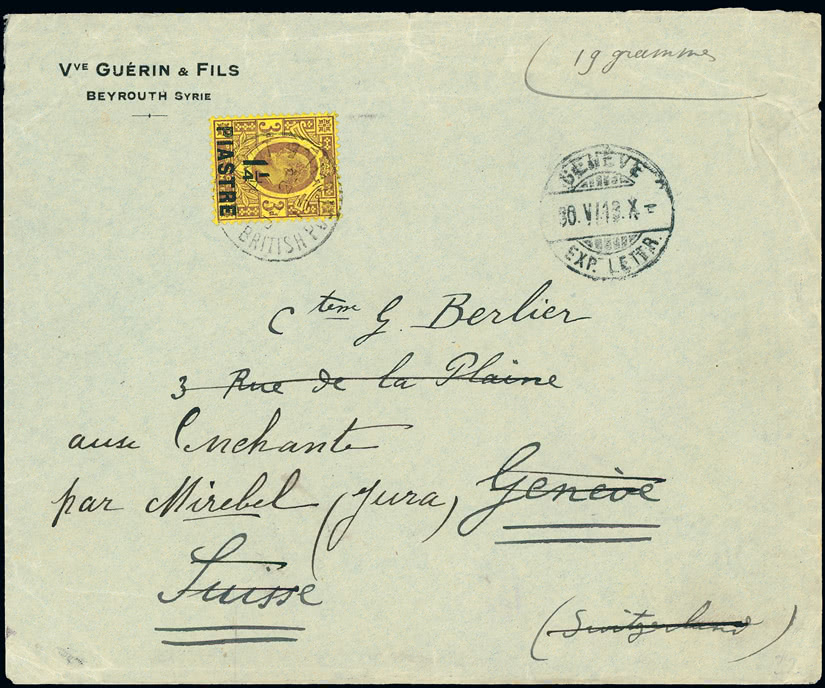 Vve GUÉRIN & FILS
BEYROUTH SYRIE
19 grammes
3D
PIASTRE
1 1/4
3D
BRITISH P
GENÈVE
30.VI.13.X
EXP. LETTR.
Cteur G. Berlier
3 Rue de la Plaine
aux Enchante
par Mirebel (Jura) Genève
Suisse
(Switzerland)